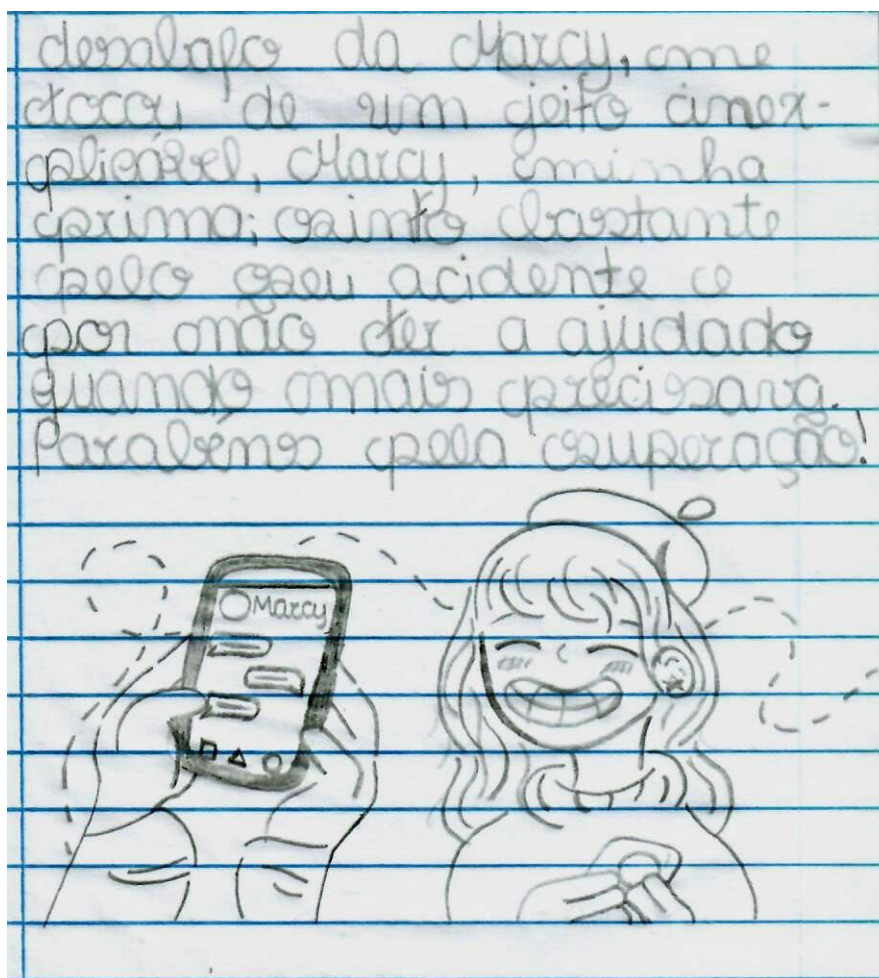 desabafo da Marcy, me
tocou de um jeito inex-
plicável, Marcy, minha
prima; sinto bastante
pelo seu acidente e
por não ter a ajudado
quando mais precisava.
Parabéns pela superação!
Marcy